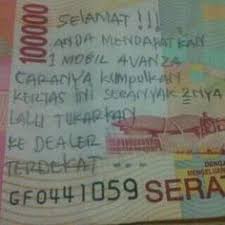 100000
SELAMAT !!!
ANDA MENDAPATKAN
1 MOBIL AVANZA
CARANYA KUMPULKAN
KERTAS INI SEBANYAK 2NYA
LALU TUKARKAN
KE DEALER
TERDEKAT ---
DENGAN
GF0441059 SERAT